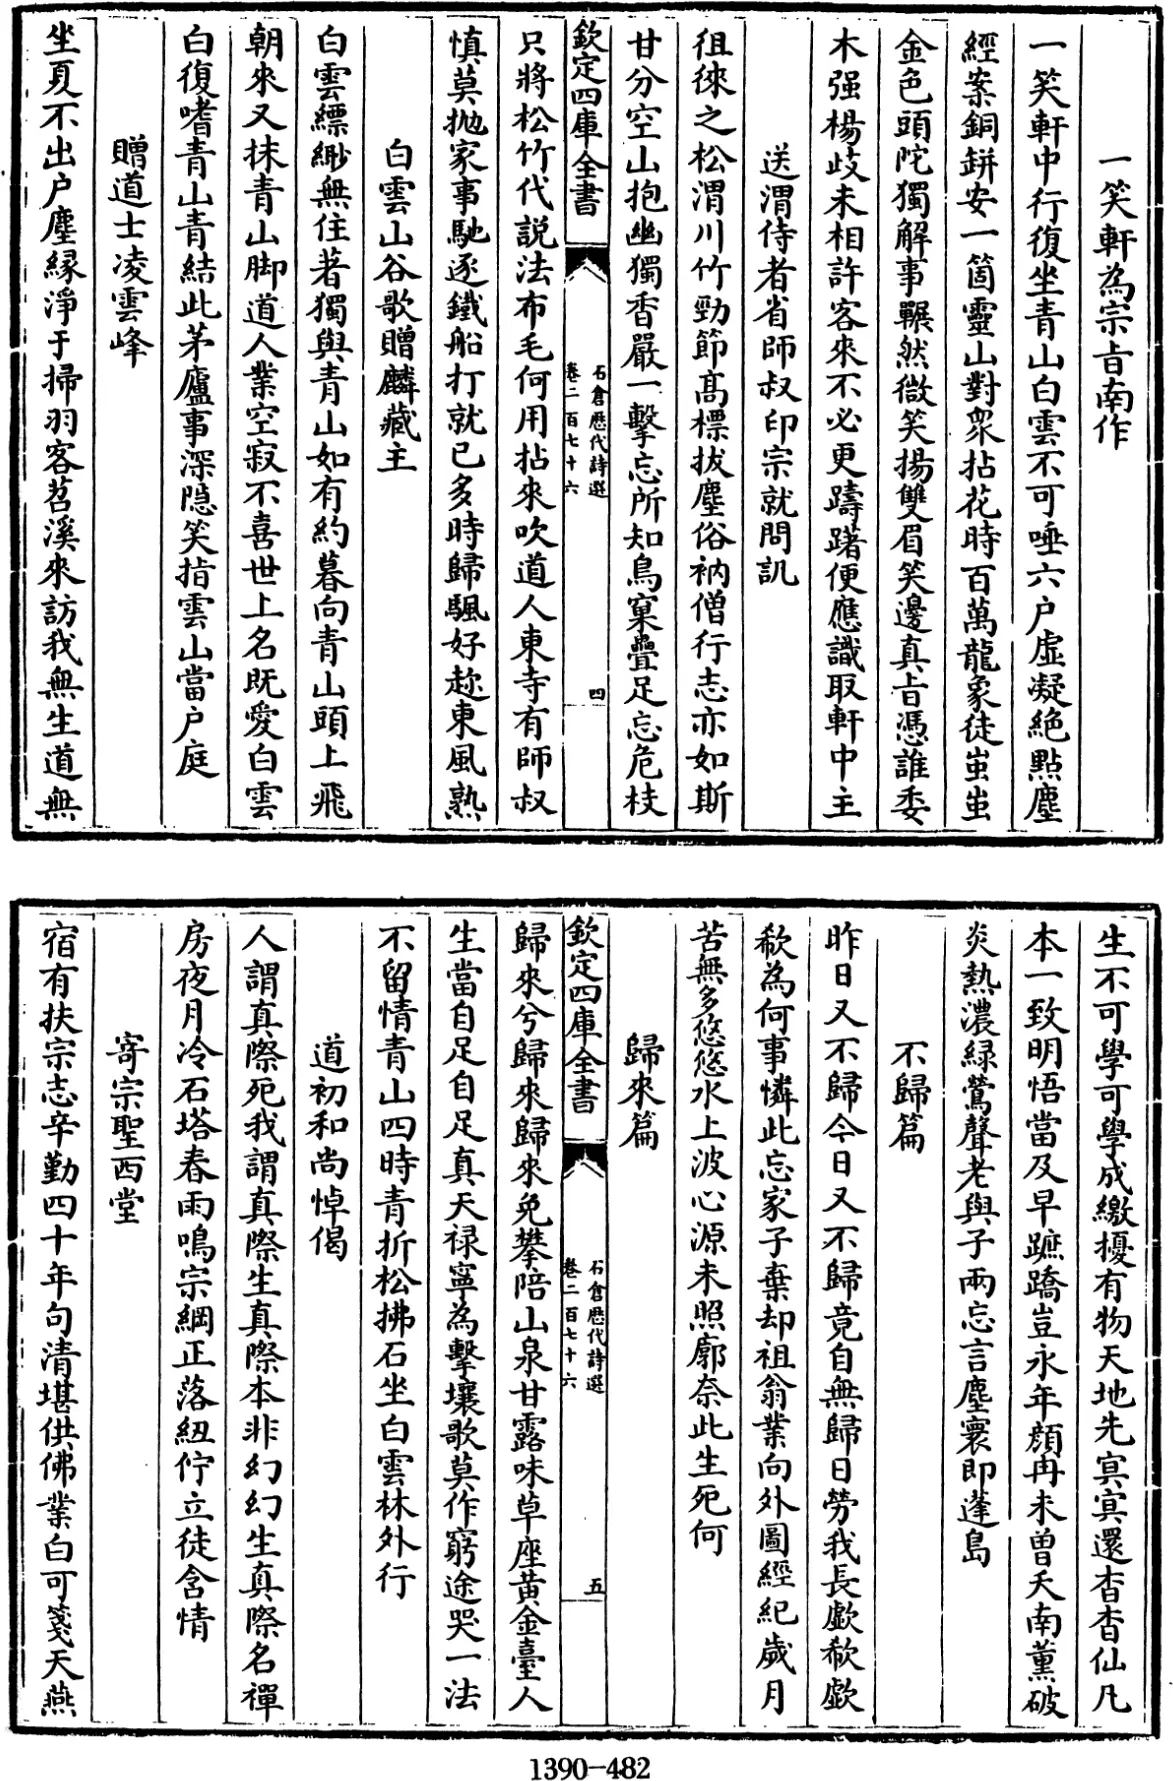 一笑軒為宗㫖南作
一笑軒中行復坐青山白雲不可唾六户虛凝絶點塵
經案銅缾安一箇靈山對衆拈花時百萬龍象徒蚩蚩
金色頭陀獨解事冁然微笑揚雙眉笑邊真㫖憑誰委
木强楊歧未相許客來不必更躊躇便應識取軒中主
送渭侍者省師叔印宗就問訊
徂徠之松渭川竹勁節髙標拔塵俗衲僧行志亦如斯
甘分空山抱幽獨香嚴一擊忘所知鳥窠疊足忘危枝
欽定四庫全書
石倉歴代詩選
卷二百七十六
四
只將松竹代説法布毛何用拈來吹道人東寺有師叔
慎莫抛家事馳逐鐵船打就已多時歸颿好趂東風熟
白雲山谷歌贈麟藏主
白雲縹緲無住著獨與青山如有約暮向青山頭上飛
朝來又抹青山脚道人業空寂不喜世上名既愛白雲
白復嗜青山青結此茅廬事深隠笑指雲山當户庭
贈道士凌雲峰
坐夏不出户塵緣淨于掃羽客苕溪來訪我無生道無
生不可學可學成繳擾有物天地先㝠㝠還杳杳仙凡
本一致明悟當及早蹠蹻豈永年顔冉未曽夭南薫破
炎熱濃緑鶯聲老與子兩忘言塵寰即蓬島
不歸篇
昨日又不歸今日又不歸竟自無歸日勞我長歔欷歔
欷為何事憐此忘家子棄却祖翁業向外圖經紀歲月
苦無多悠悠水上波心源未照廓奈此生死何
歸來篇
欽定四庫全書
石倉歴代詩選
卷二百七十六
五
歸來兮歸來歸來免攀陪山泉甘露味草座黄金臺人
生當自足自足真天禄寜為擊壤歌莫作窮途哭一法
不留情青山四時青折松拂石坐白雲林外行
道初和尚悼偈
人謂真際死我謂真際生真際本非幻幻生真際名禪
房夜月冷石塔春雨鳴宗綱正落紐佇立徒含情
寄宗聖西堂
宿有扶宗志辛勤四十年句清堪供佛業白可箋天燕
1390-482